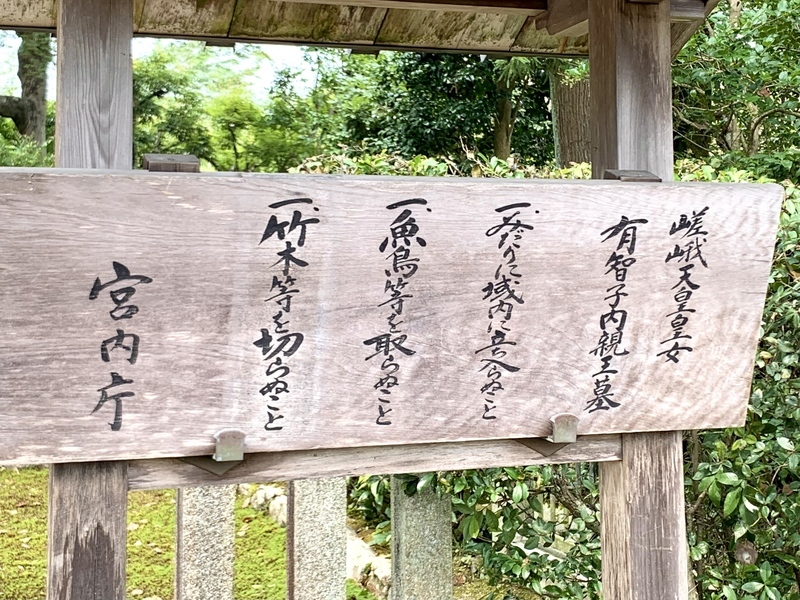 嵯峨天皇皇女
有智子内親王墓
一、みだりに域内に立ち入らぬこと
一、魚鳥等を取らぬこと
一、竹木等を切らぬこと
宮内庁